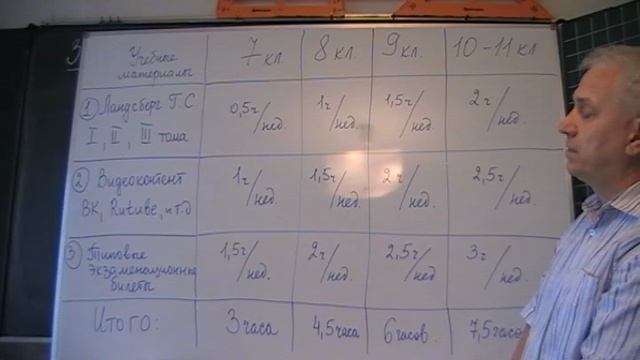 Учебные материалы 7 кл. 8 кл. 9 кл. 10-11 кл
① Ландсберг Г.С. I, II, III тома 0,5ч/нед. 1ч/нед. 1,5ч/нед. 2ч/нед.
② Видеоконтент ВК, Rutube, и т.д 1ч/нед. 1,5ч/нед. 2ч/нед. 2,5ч/нед.
③ Типовые экзаменационные билеты 1,5ч/нед. 2ч/нед. 2,5ч/нед. 3ч/нед.
Итого: 3 часа 4,5 часа 6 часов. 7,5 часов